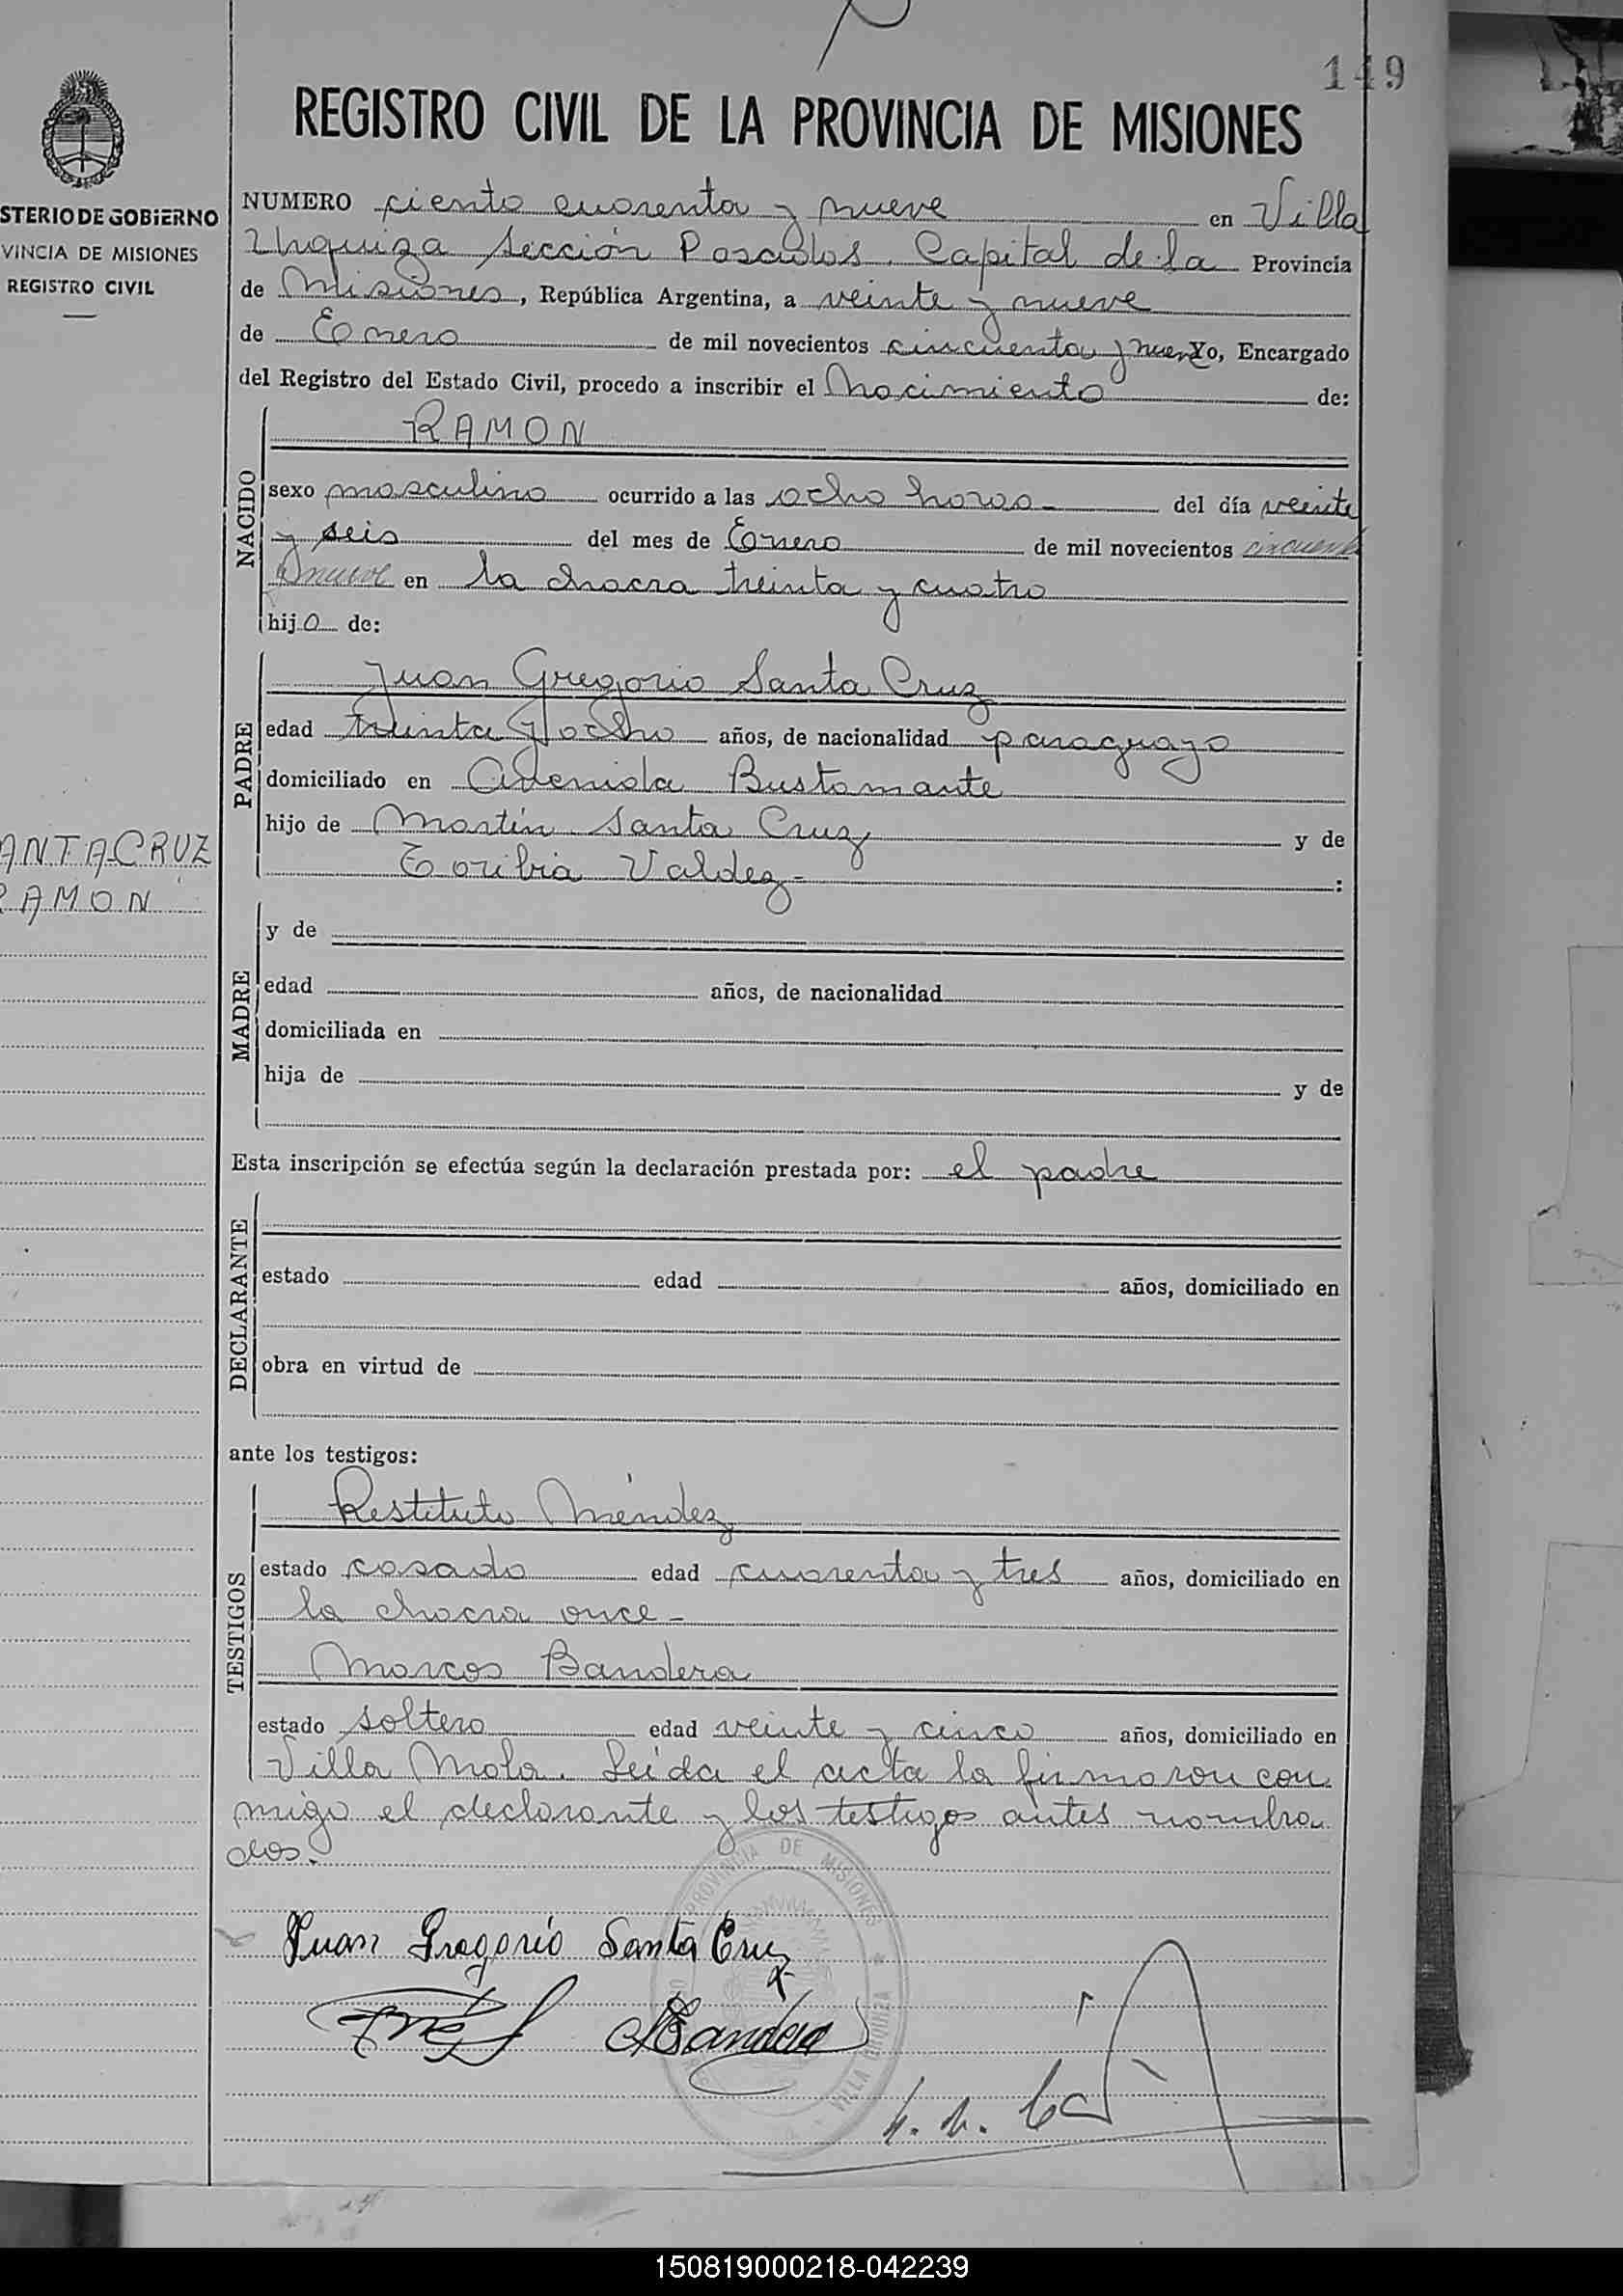 149
REGISTRO CIVIL DE LA PROVINCIA DE MISIONES
STERIO DE GOBIERNO
VINCIA DE MISIONES
REGISTRO CIVIL
NUMERO ciento cuarenta y nueve en Villa
Urquiza Sección Posadas. Capital de la Provincia
de Misiones, República Argentina, a veinte y nueve
de Enero de mil novecientos cincuenta y nueve Yo, Encargado
del Registro del Estado Civil, procedo a inscribir el Nacimiento de:
NACIDO
RAMON
sexo masculino ocurrido a las ocho horas del día veinte
y seis del mes de Enero de mil novecientos cincuenta
y nueve en la chacra treinta y cuatro
hijo de:
PADRE
Juan Gregorio Santa Cruz
edad treinta y ocho años, de nacionalidad paraguayo
domiciliado en Avenida Bustamante
hijo de Martín Santa Cruz y de
Toribia Valdez :
ANTACRUZ
RAMON
MADRE
y de
edad años, de nacionalidad
domiciliada en
hija de y de
Esta inscripción se efectúa según la declaración prestada por: el padre
DECLARANTE
estado edad años, domiciliado en
obra en virtud de
ante los testigos:
TESTIGOS
Restituto Méndez
estado casado edad cuarenta y tres años, domiciliado en
la chacra once
Marcos Bandera
estado soltero edad veinte y cinco años, domiciliado en
Villa Mola. Leída el acta la firmaron con
migo el declarante y los testigos antes nombra
dos.
PROVINCIA DE MISIONES
VILLA URQUIZA
Juan Gregorio Santa Cruz
MBandera
150819000218-042239